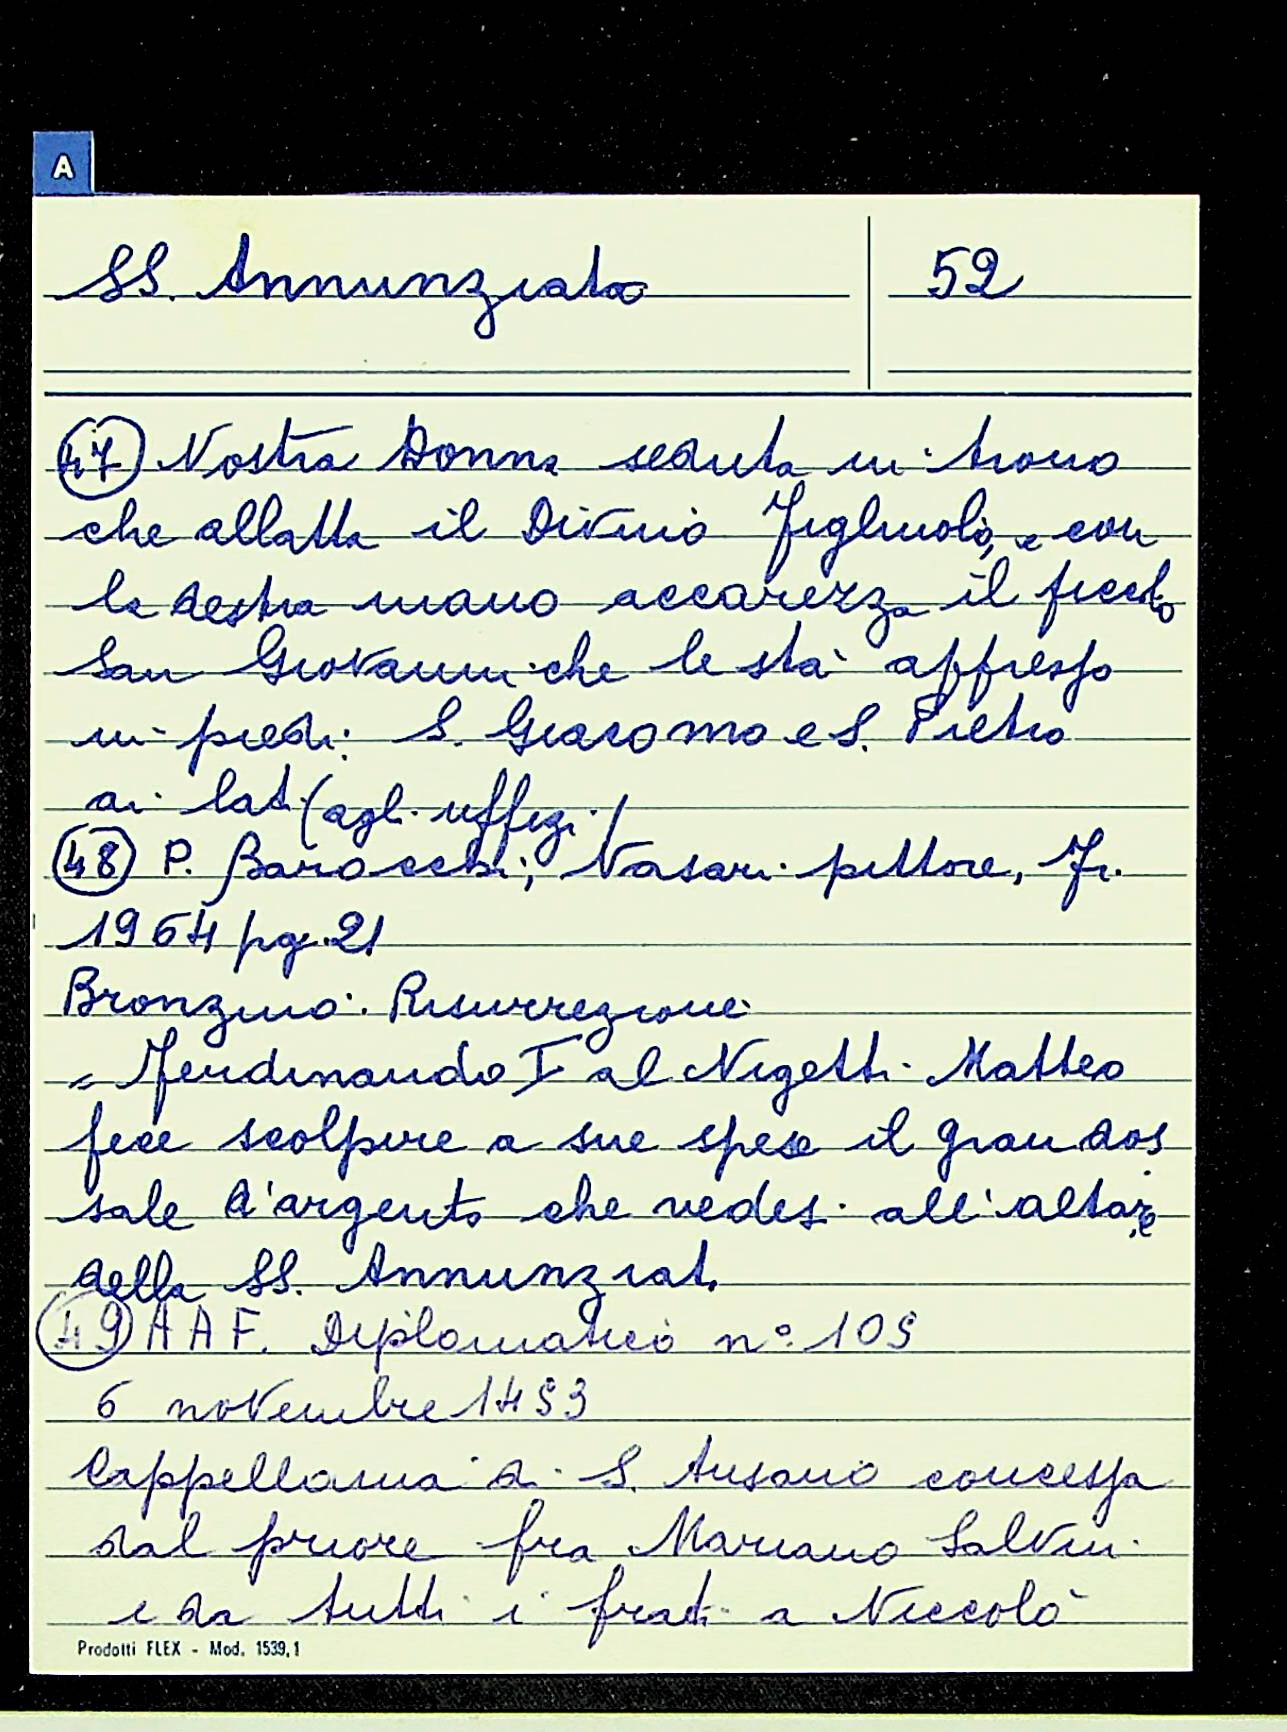 A
SS. Annunziata
52
47 Nostra Donna seduta in trono
che allatta il Divino Figliuolo, e con
la destra mano accarezza il piccolo
San Giovanni che le sta appresso
in piedi. S. Giacomo e S. Pietro
ai lati (agli uffizi)
48 P. Barocchi, Vasari pittore, Fi.
1964 pg. 21
Bronzino: Risurrezione
= Ferdinando I al Nigetti Matteo
fece scolpire a sue spese il gran dos
sale d'argento che vedesi all'altare
della SS. Annunziat.
49 A A F. Diplomatico n° 109
6 novembre 1493
Cappellania di S. Ansano concessa
dal priore fra Mariano Salvini
e da tutti i frati a Niccolò
Prodotti FLEX - Mod. 1539,1